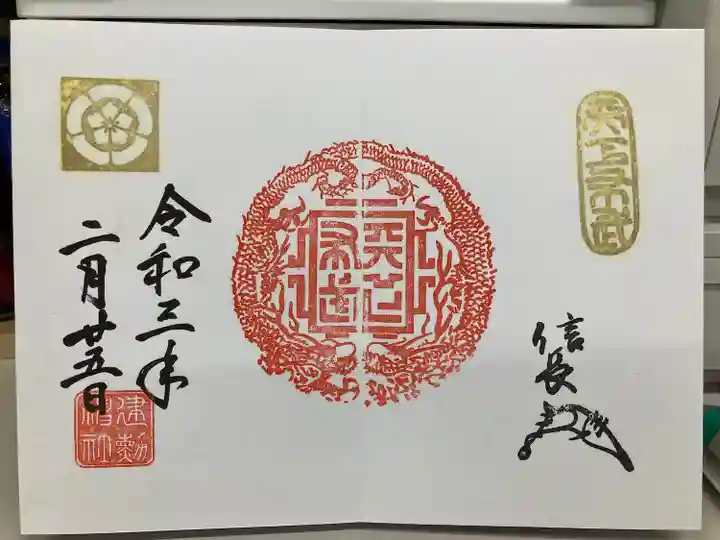 天下布武
天下布武
信長
令和三年
二月廿五日
建勲神社